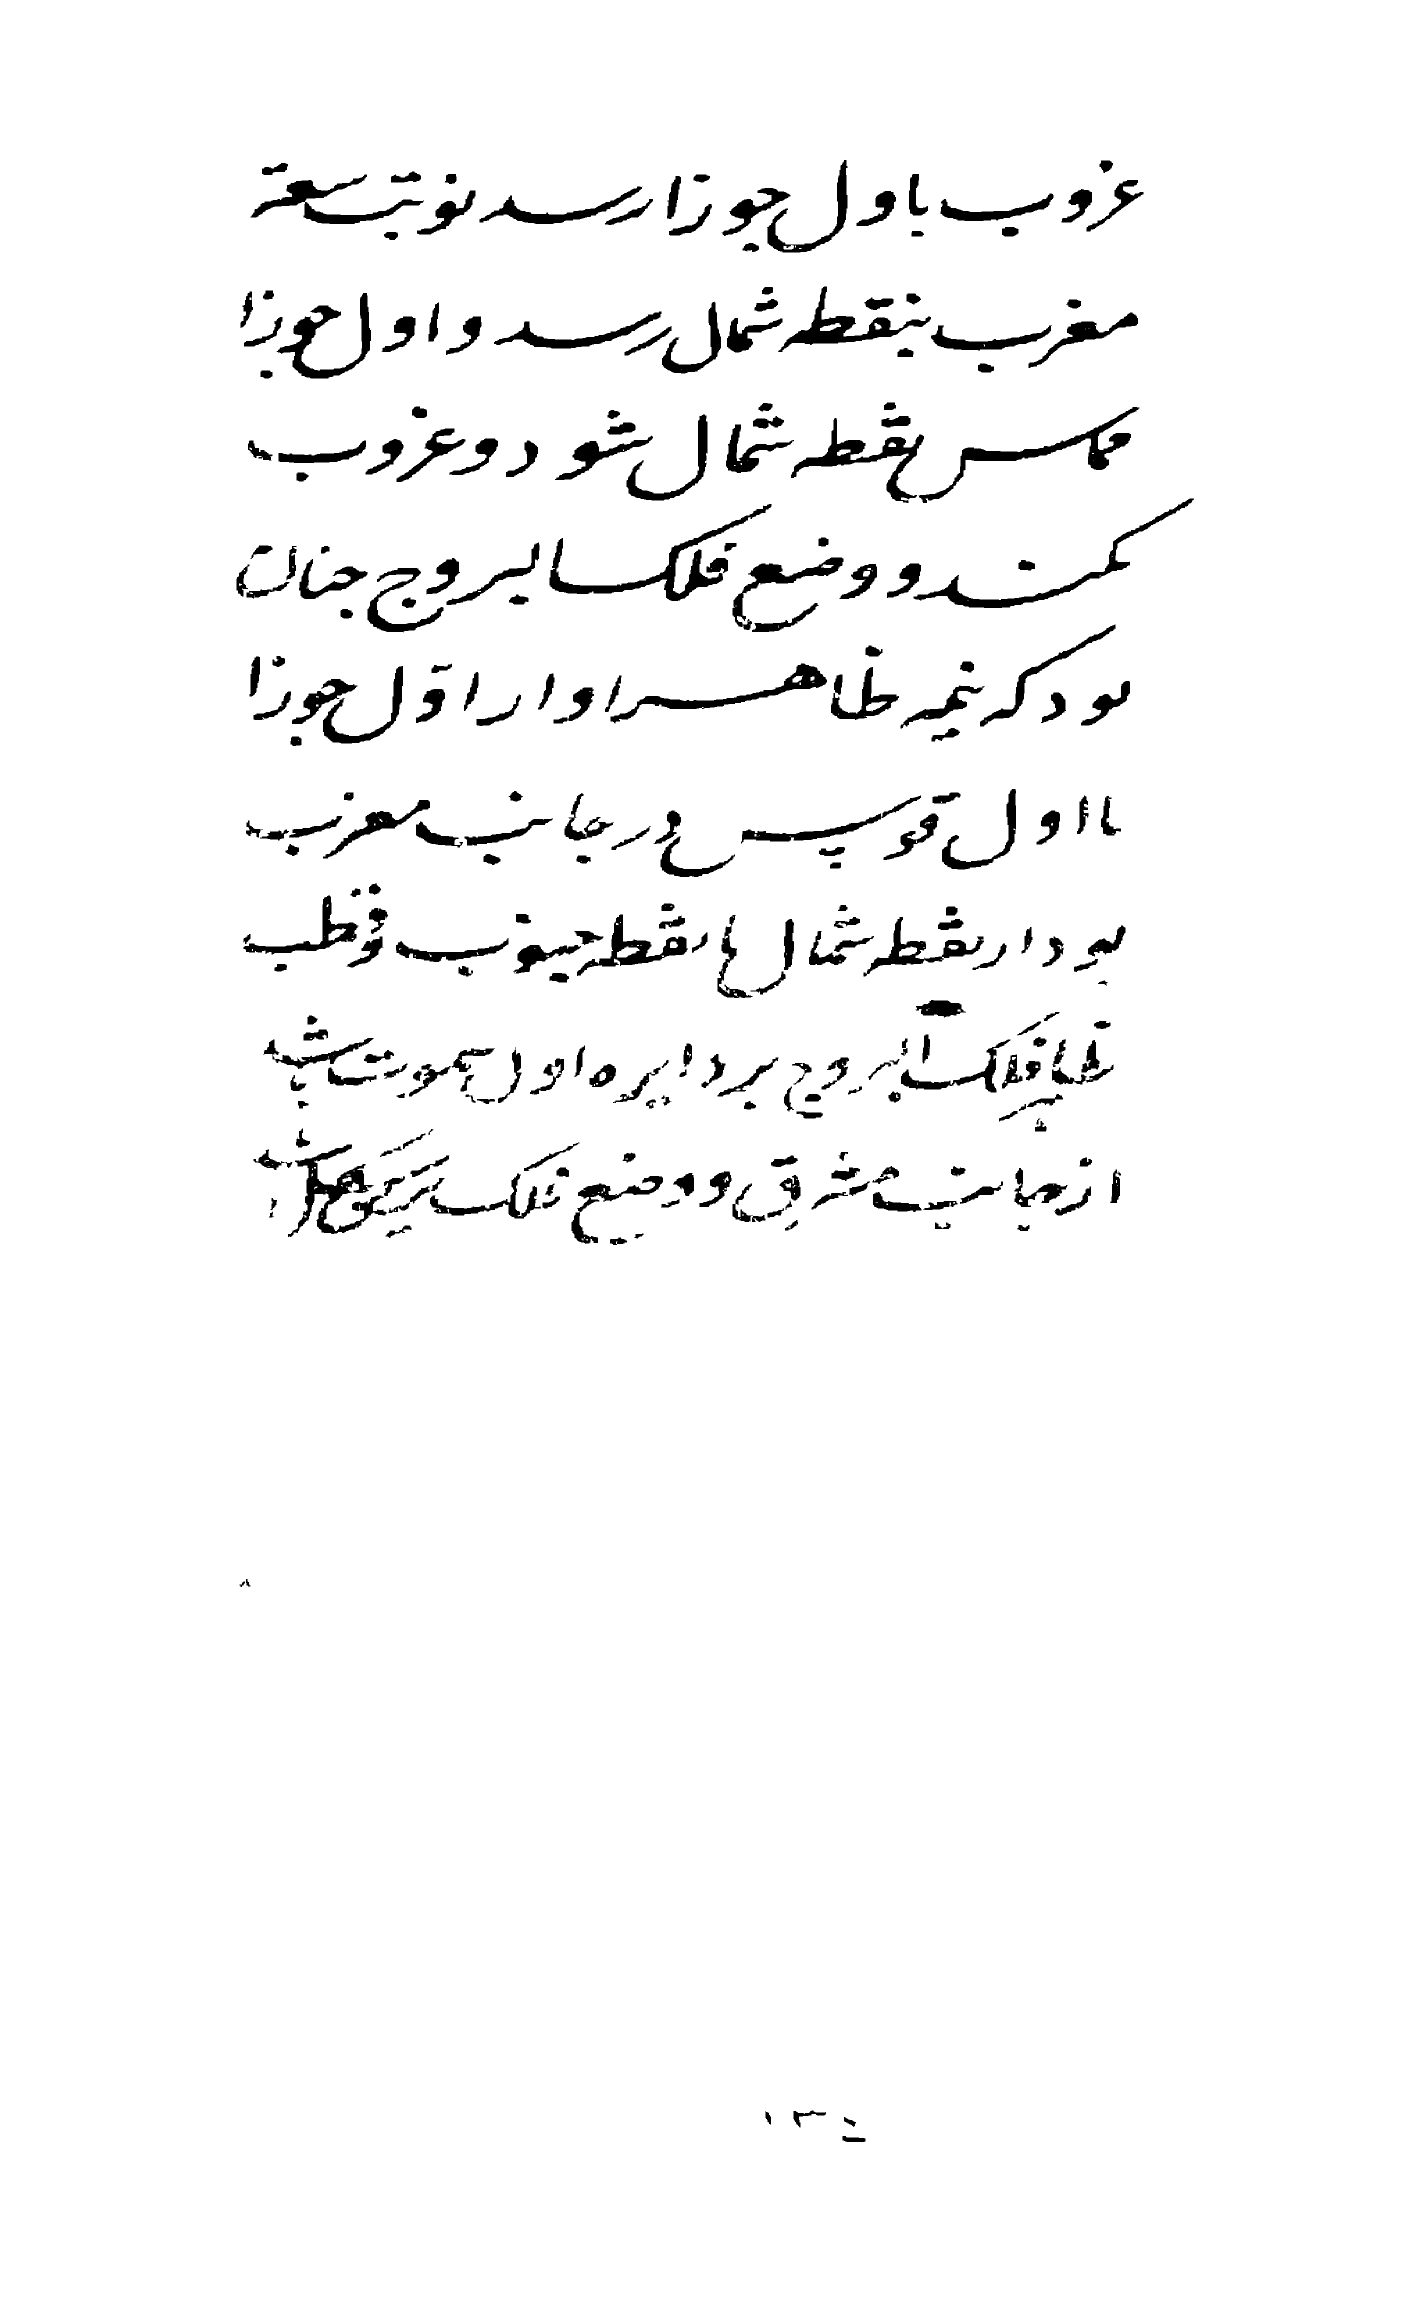 غروب باول جوزا رسد نوبت سعة
مغرب بنقطه شمال رسد و اول جوزا
مماس نقطه شمال شود و غروب
نكند و وضع فلك البروج چنان
بود كه نیمه ظاهر او از اول جوزا
تا اول قوس در جانب مغرب
بود از نقطه شمال تا نقطه جنوب و قطب
ظاهر فلك البروج بر دایره اول سموت باشد
از جانب مشرق و وضع فلك